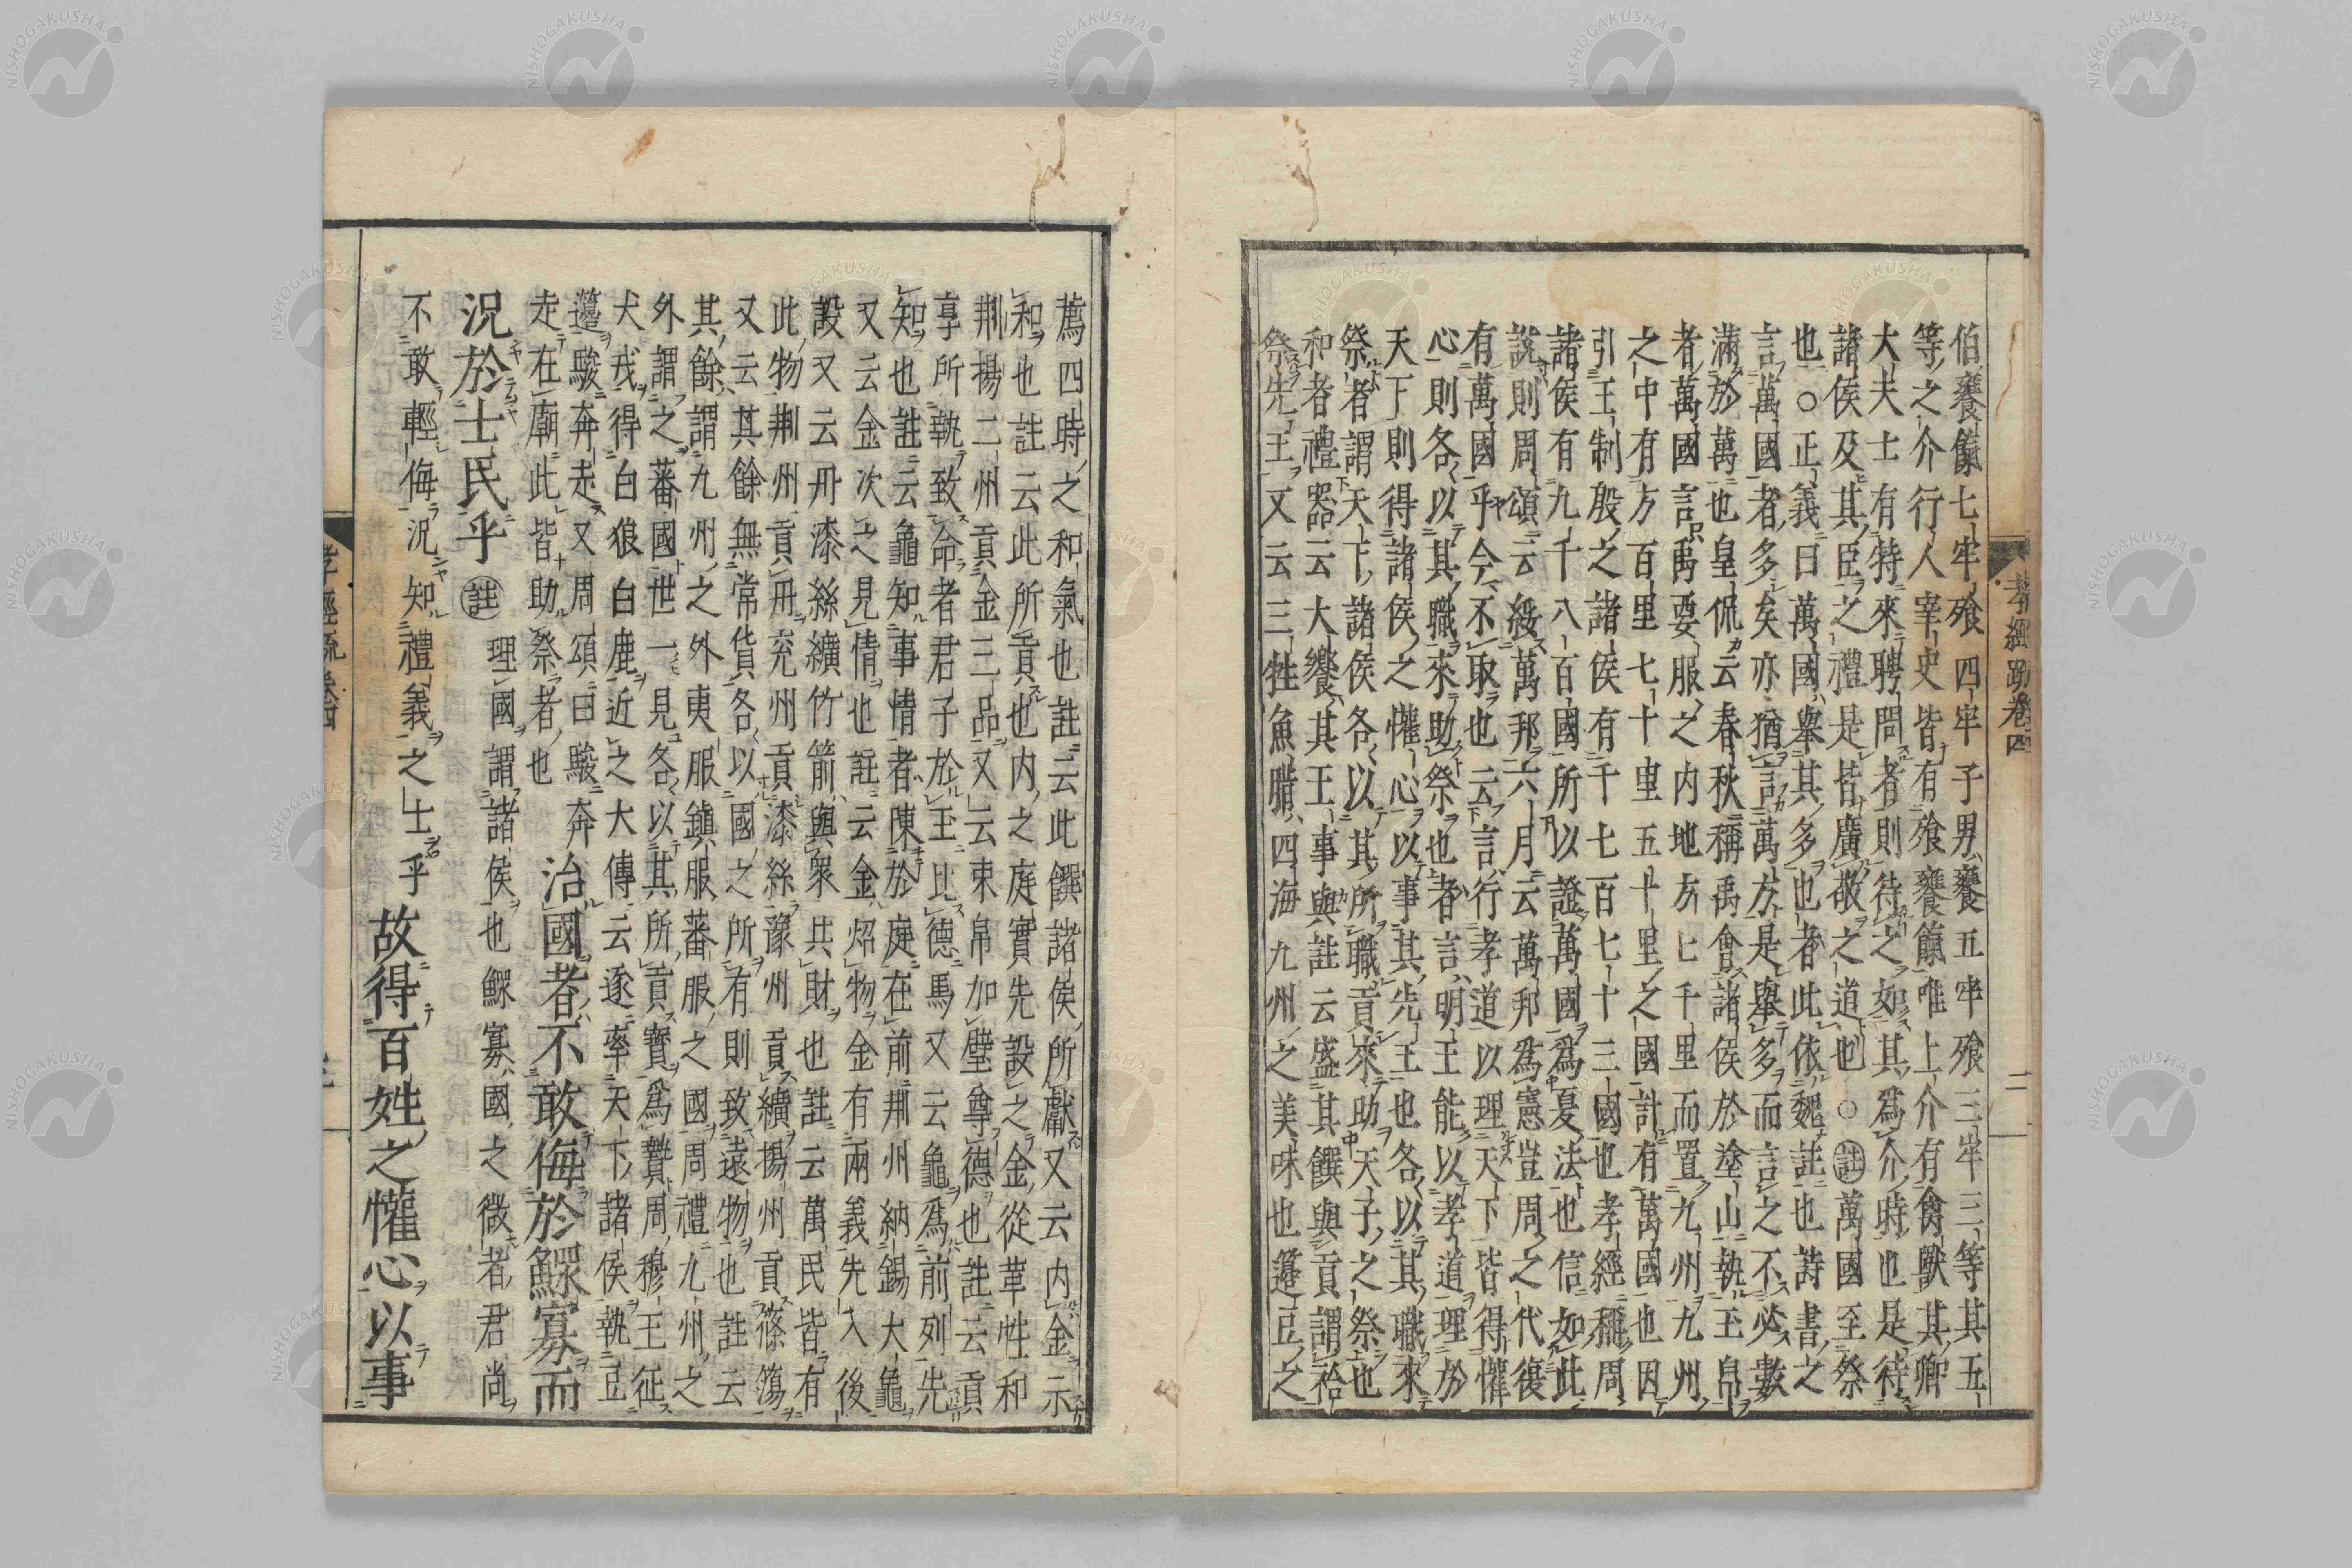 伯饔餼七牢飧四牢子男饔五牢飧三牢三等其五
等之介行人宰史皆有飧饔餼唯上介有禽獸其卿
大夫士有特來聘問者則待之如其爲介時也是待
諸侯及其臣之禮是皆廣敬之道也○註萬國至祭
也○正義曰萬國舉其多也者此依魏註也詩書之
言萬國者多矣亦猶言萬方是舉多而言之不必數
滿於萬也皇侃云春秋稱禹會諸侯於塗山執玉帛
者萬國言禹要服之内地方七千里而置九州九州
之中有方百里七十里五十里之國計有萬國也因
引王制殷之諸侯有千七百七十三國也孝經稱周
諸侯有九千八百國所以證萬國爲夏法也信如此
說則周頌云綏萬邦六月云萬邦爲憲豈周之代復
有萬國乎今不取也云言行孝道以理天下皆得懽
心則各以其職來助祭也者言明王能以孝道理於
天下則得諸侯之懽心以事其先王也各以其職來
祭者謂天下諸侯各以其所職貢來助天子之祭也
和者禮器云大饗其王事與註云盛其饌與貢謂祫
祭先王又云三牲魚腊四海九州之美味也籩豆之
孝經疏卷四
二
薦四時之和氣也註云此饌諸侯所獻又云内金示
和也註云此所貢也内之庭實先設之金從革性和
荆揚二州貢金三品又云束帛加璧尊德也註云貢
享所執致命者君子於玉比德焉又云龜爲前列先
知也註云龜知事情者陳於庭在前荆州納錫大龜
又云金次之見情也註云金炤物金有兩義先入後
設又云丹漆絲纊竹箭與衆共財也註云萬民皆有
此物荆州貢丹兖州貢漆絲豫州貢纊揚州貢篠簜
又云其餘無常貨各以國之所有則致遠物也註云
其餘謂九州之外夷服鎮服蕃服之國周禮九州之
外謂之蕃國世一見各以其所貢寶爲贄周穆王征
犬戎得白狼白鹿近之大傳云遂率天下諸侯執豆
籩駿奔走又周頌曰駿奔
走在廟此皆助祭者也治國者不敢侮於鰥寡而
況於士民乎註理國謂諸侯也鰥寡國之微者君尚
不敢輕侮況知禮義之士乎故得百姓之懽心以事
孝經疏卷四